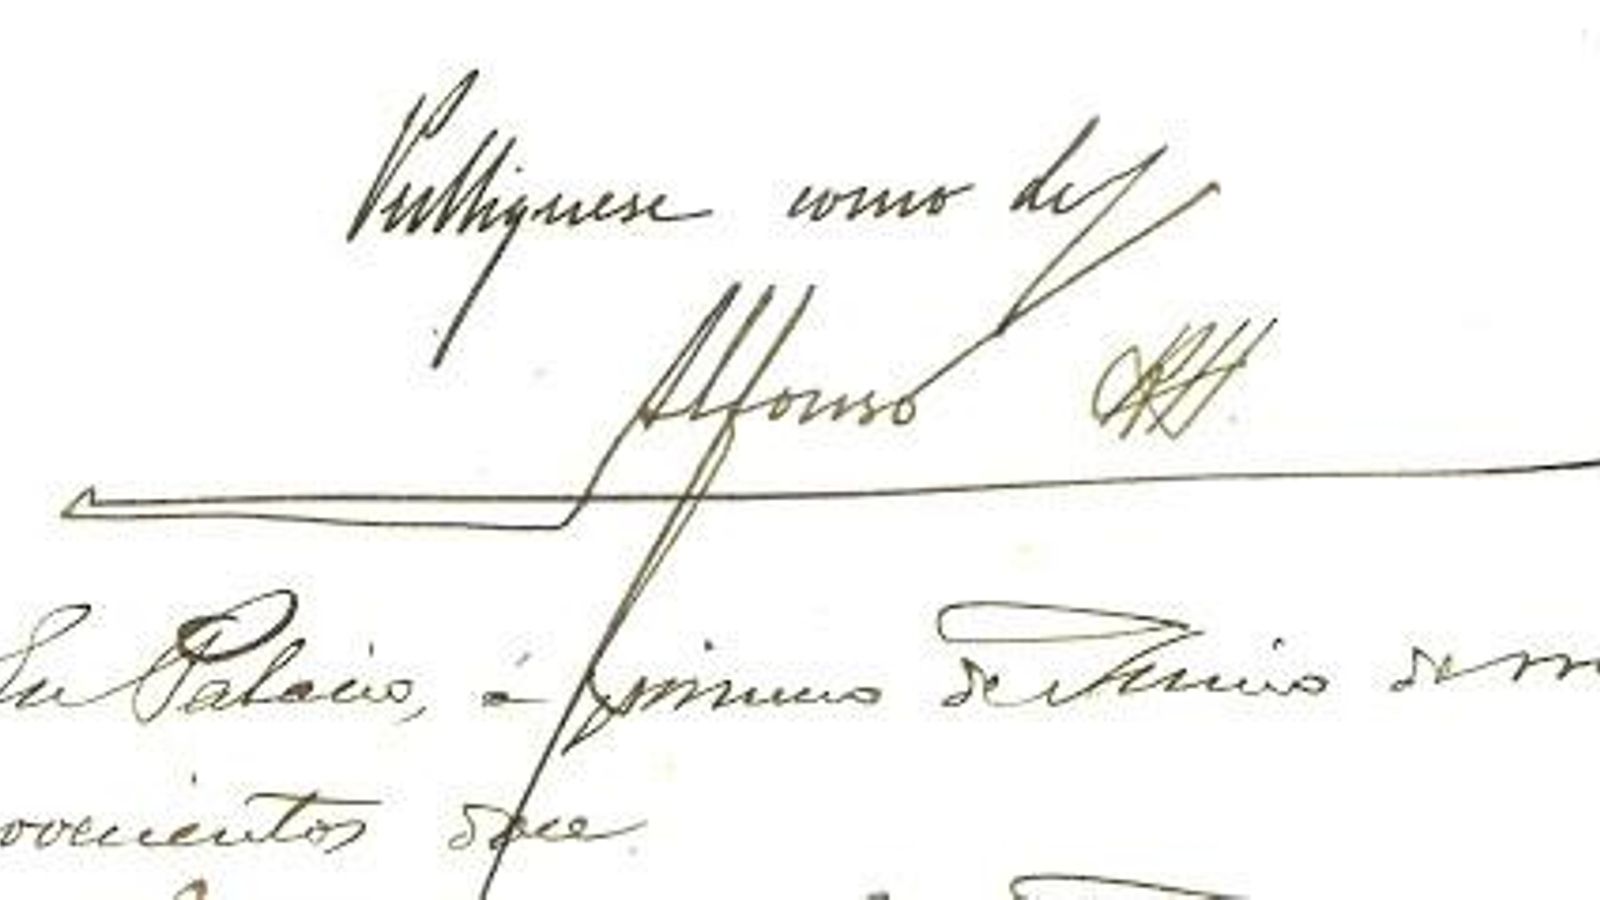 Publíquese como ley
Alfonso
En Palacio, á primero de Junio de m
ovecientos doce